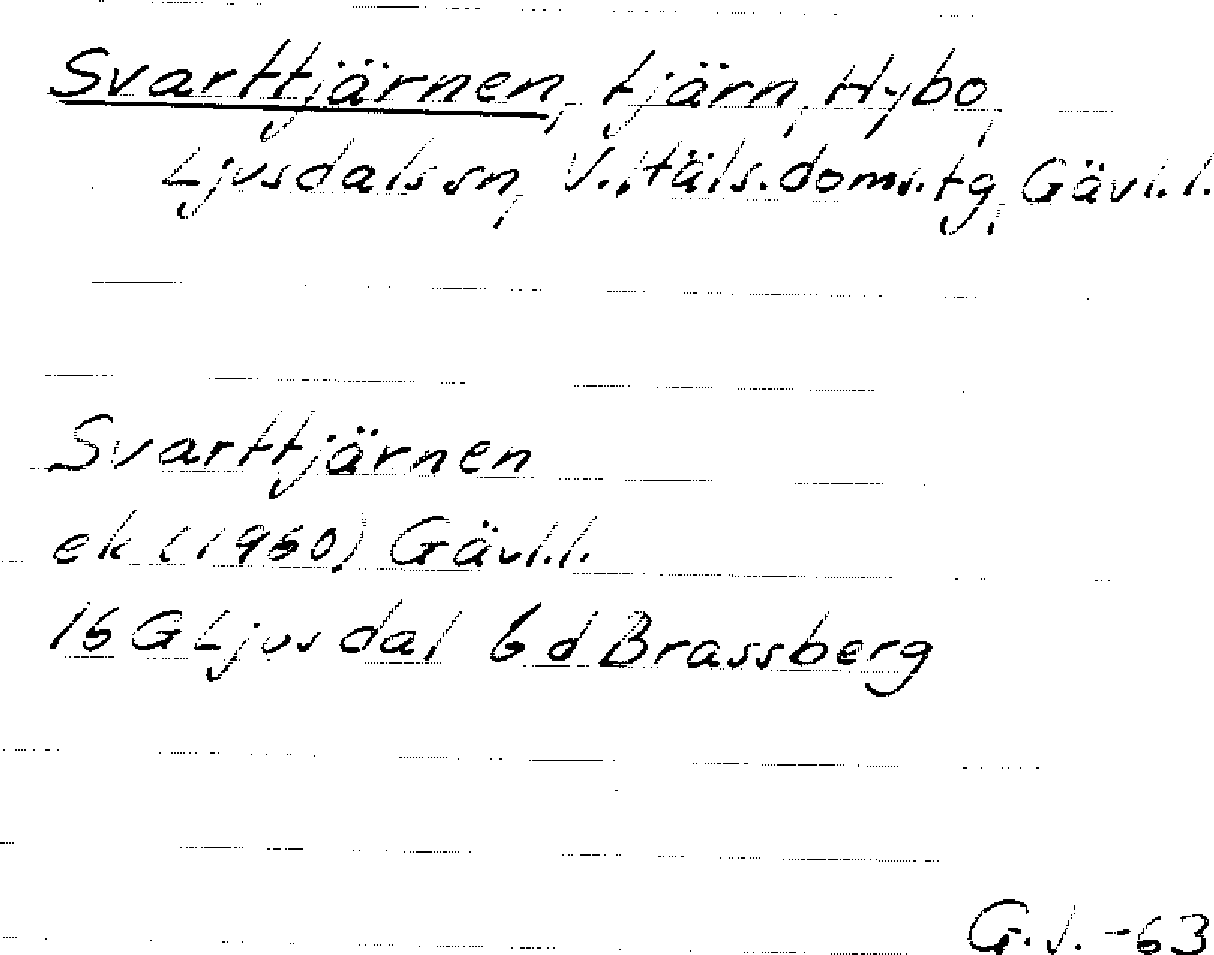 Svarttjärnen, tjärn, Hybo,
Ljusdals sn, V. Häls. doms. tg, Gävl. l.
Svarttjärnen
ek (1960) Gävl. l.
16 G Ljusdal 6 d Brassberg
G. J. -63